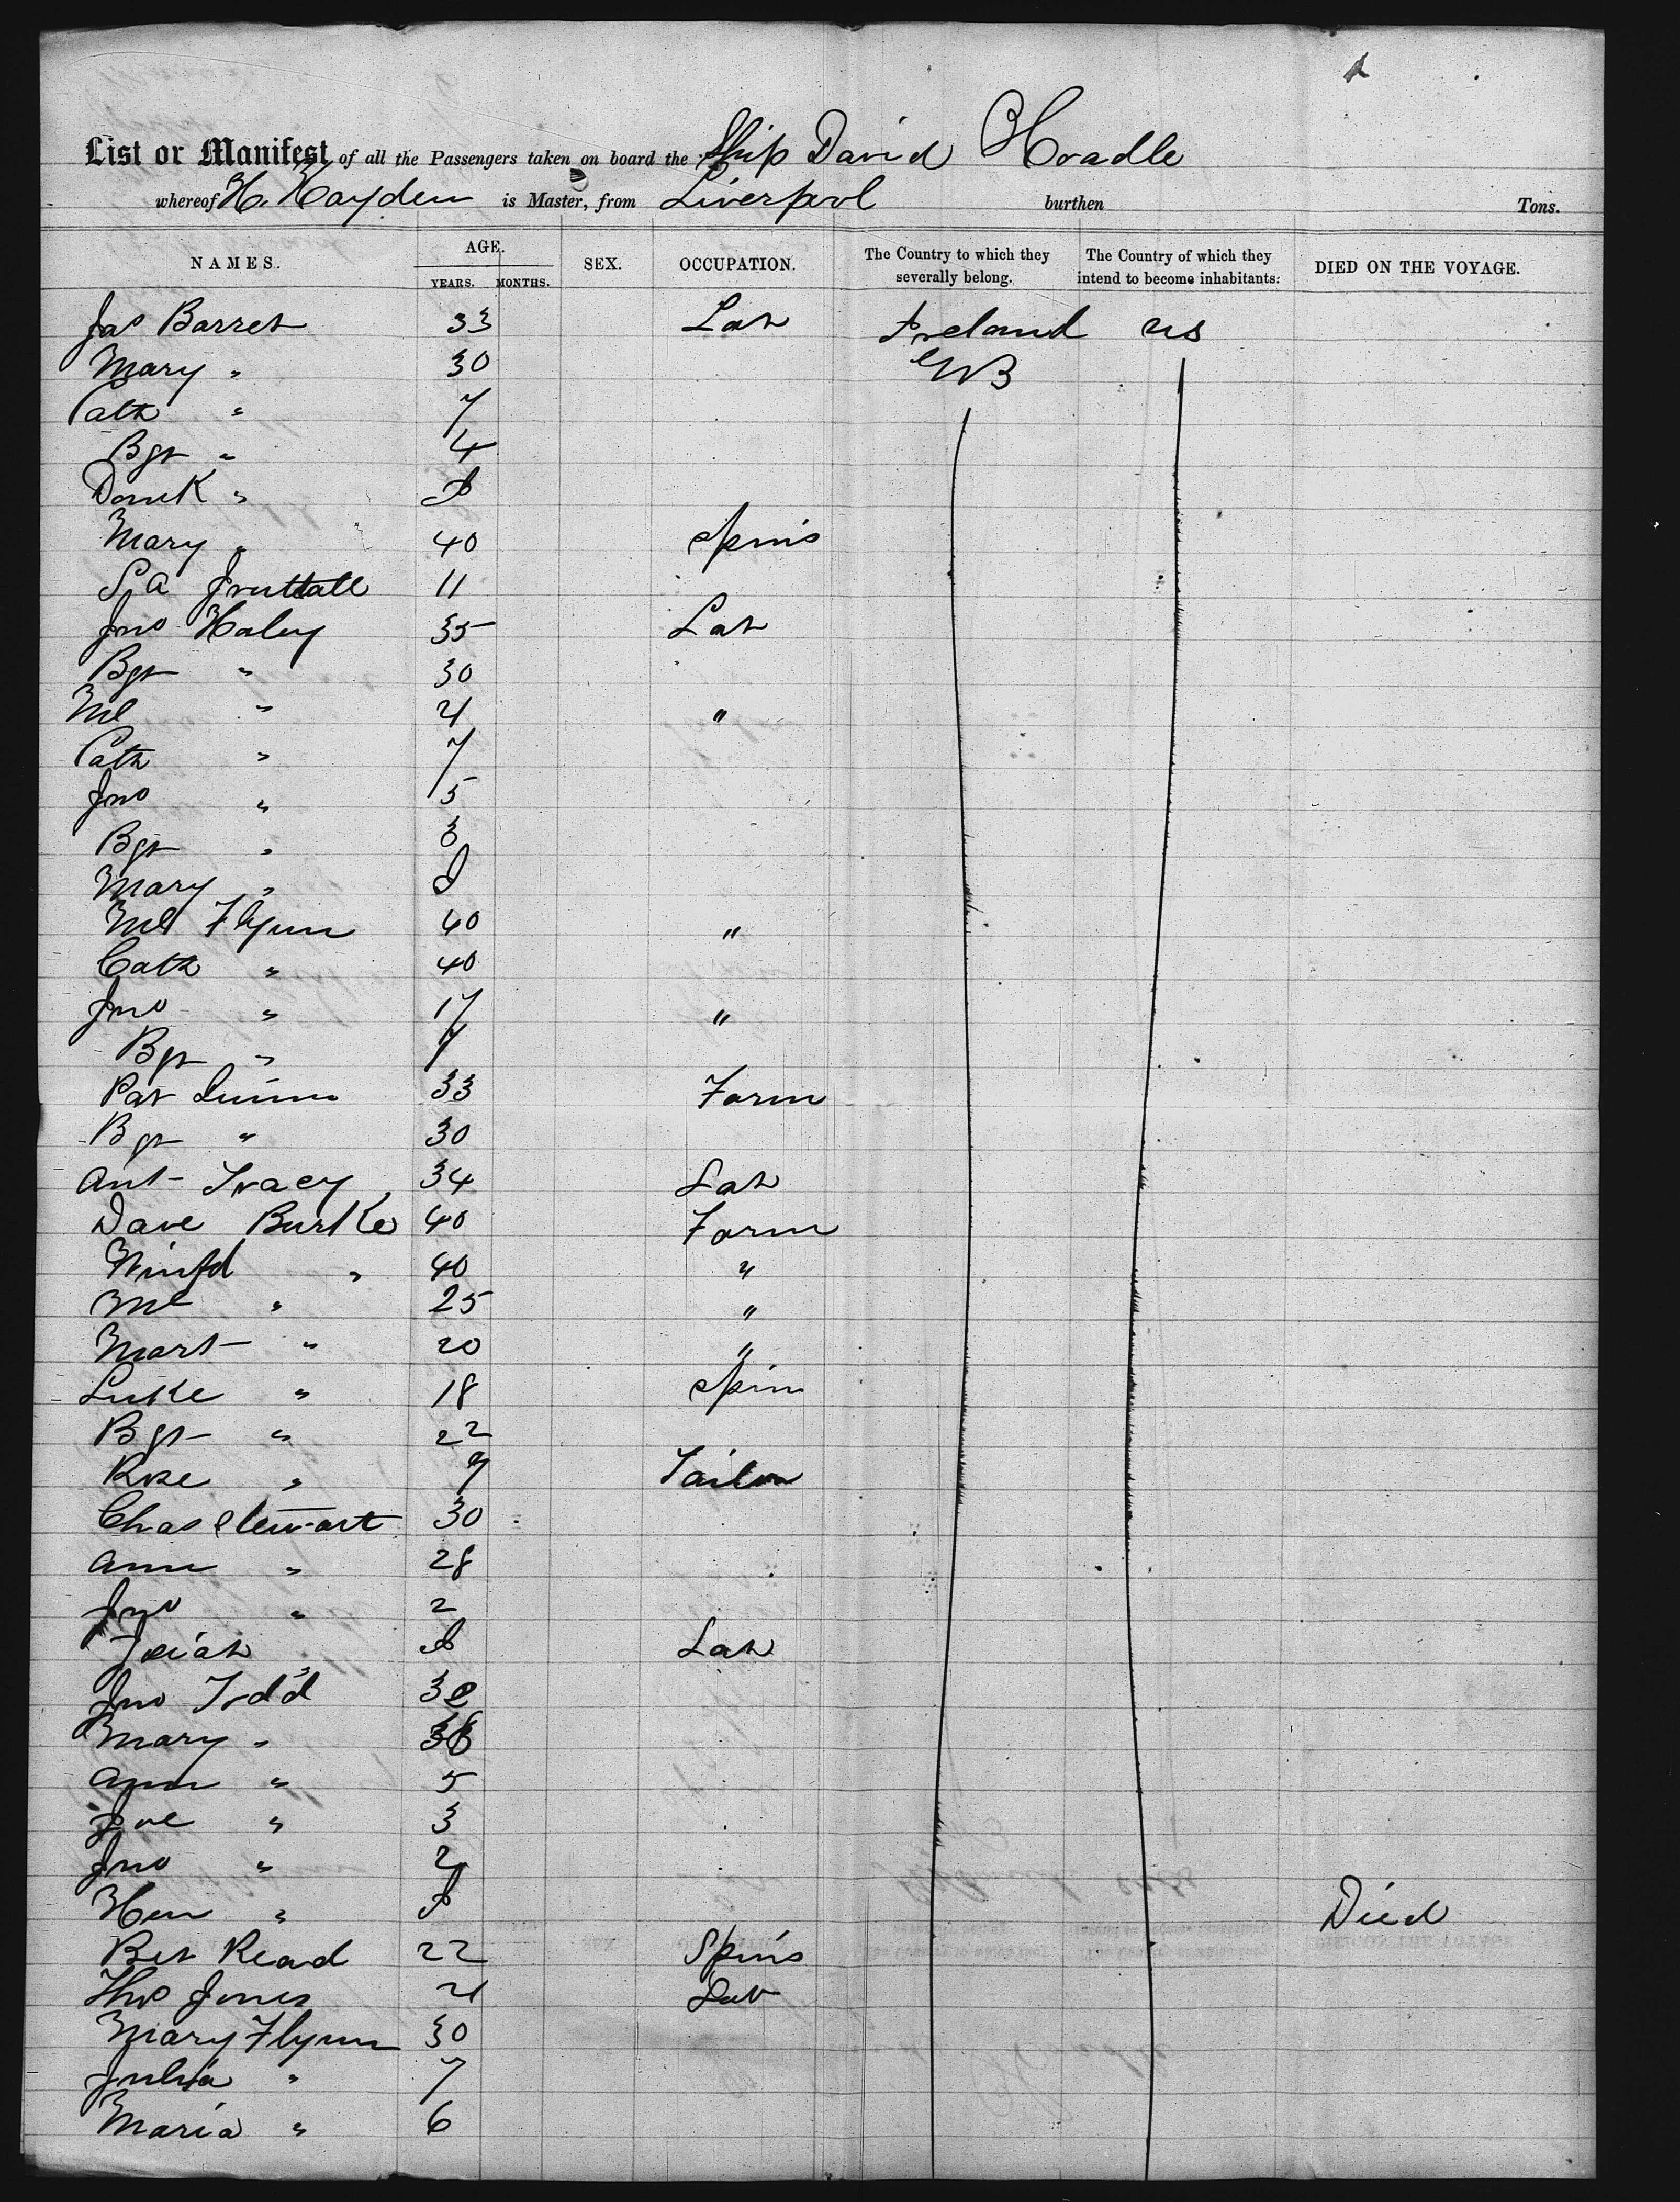 List or Manifest of all the Passengers taken on board the Ship David Hoadle
whereof H. Hayden is Master, from Liverpool burthen Tons.
NAMES. AGE. YEARS. MONTHS. SEX. OCCUPATION. The Country to which they severally belong. The Country of which they intend to become inhabitants: DIED ON THE VOYAGE.
Jas Barret 33 Lab Ireland US
Mary " 30 GB
Cath " 7
Bgt " 4
"
Mary " 40 Spins
S A 11
Jno Haley 35 Lab
Bgt " 30
Ml " 21 "
Cath " 7
Jno " 5
Bgt " 3
Mary "
Ml Flynn 40 "
Cath " 40
Jno " 17 "
Bgt " 7
Pat 33 Farm
Bgt " 30
Ant Tracy 34 Lab
Dave Burke 40 Farm
Winfd " 40 "
Ml " 25 "
Mart " 20 "
Luke " 18 Spin
Bgt " 22
Rose " 9 Tailor
Chas Stewart 30
Ann " 28
Jno " 2
Lab
Jno Todd 32
Mary " 38
Ann " 5
Joe " 3
Jno " 2
Hen " Died
Bet Read 22 Spins
Thos Jones 21 Lab
Mary Flynn 30
Julia " 7
Maria " 6